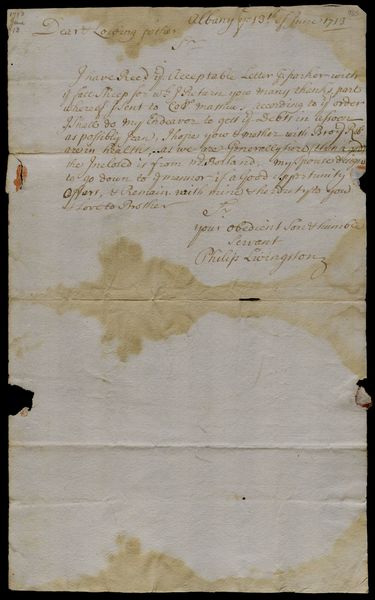 Albany ye 13th of June 1713
Dear Loving father
Sr
I have Recd yr Acceptable Letter Parker with
ye fatt Sheep for wch I Return you many thanks part
whereof I sent to Colo Mathews according to yr order
I Shall do my Endeavor to gett yr Debts in as soon
as possibly I can, I hope you & mother with Broy Robt
are in health, as we are
the Inclosed is from Borland, my Spouse designs
to go down to ye manor if a good opportunity
offers, & Remain with mine & her duty to you
& Love to Brother
Sr
your obedient Son & humble
Servant
Philip Livingston